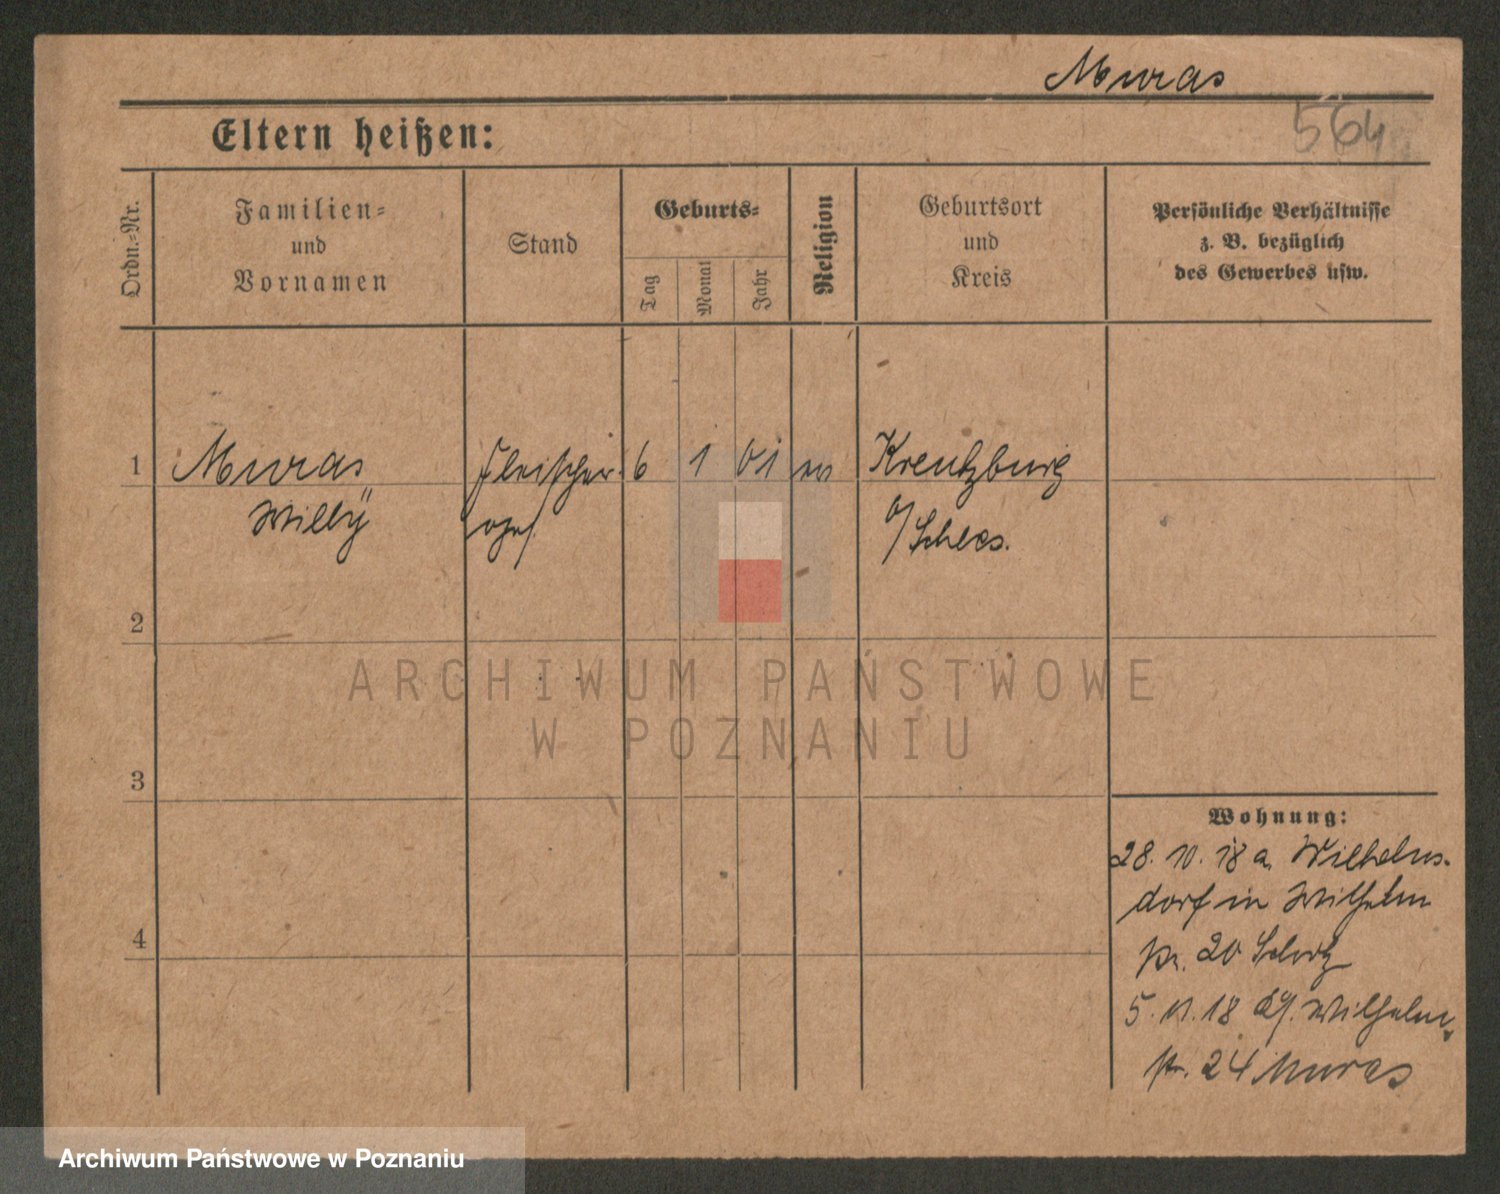 Muras
564
Eltern heißen:
Ordn.-Nr.
Familien-
und
Vornamen
Stand
Geburts-
Tag
Monat
Jahr
Religion
Geburtsort
und
Kreis
Persönliche Verhältnisse
z. B. bezüglich
des Gewerbes usw.
1
Muras
Willy
Fleischer
6
1
01
Kreutzburg
o/Schles.
2
3
4
Wohnung:
28. 10. 18 a. Wilhelms-
dorf in Wilhelm
str. 20
5. 11. 18 Wilhelm
str. 24 Muras
ARCHIWUM PAŃSTWOWE
W POZNANIU
Archiwum Państwowe w Poznaniu